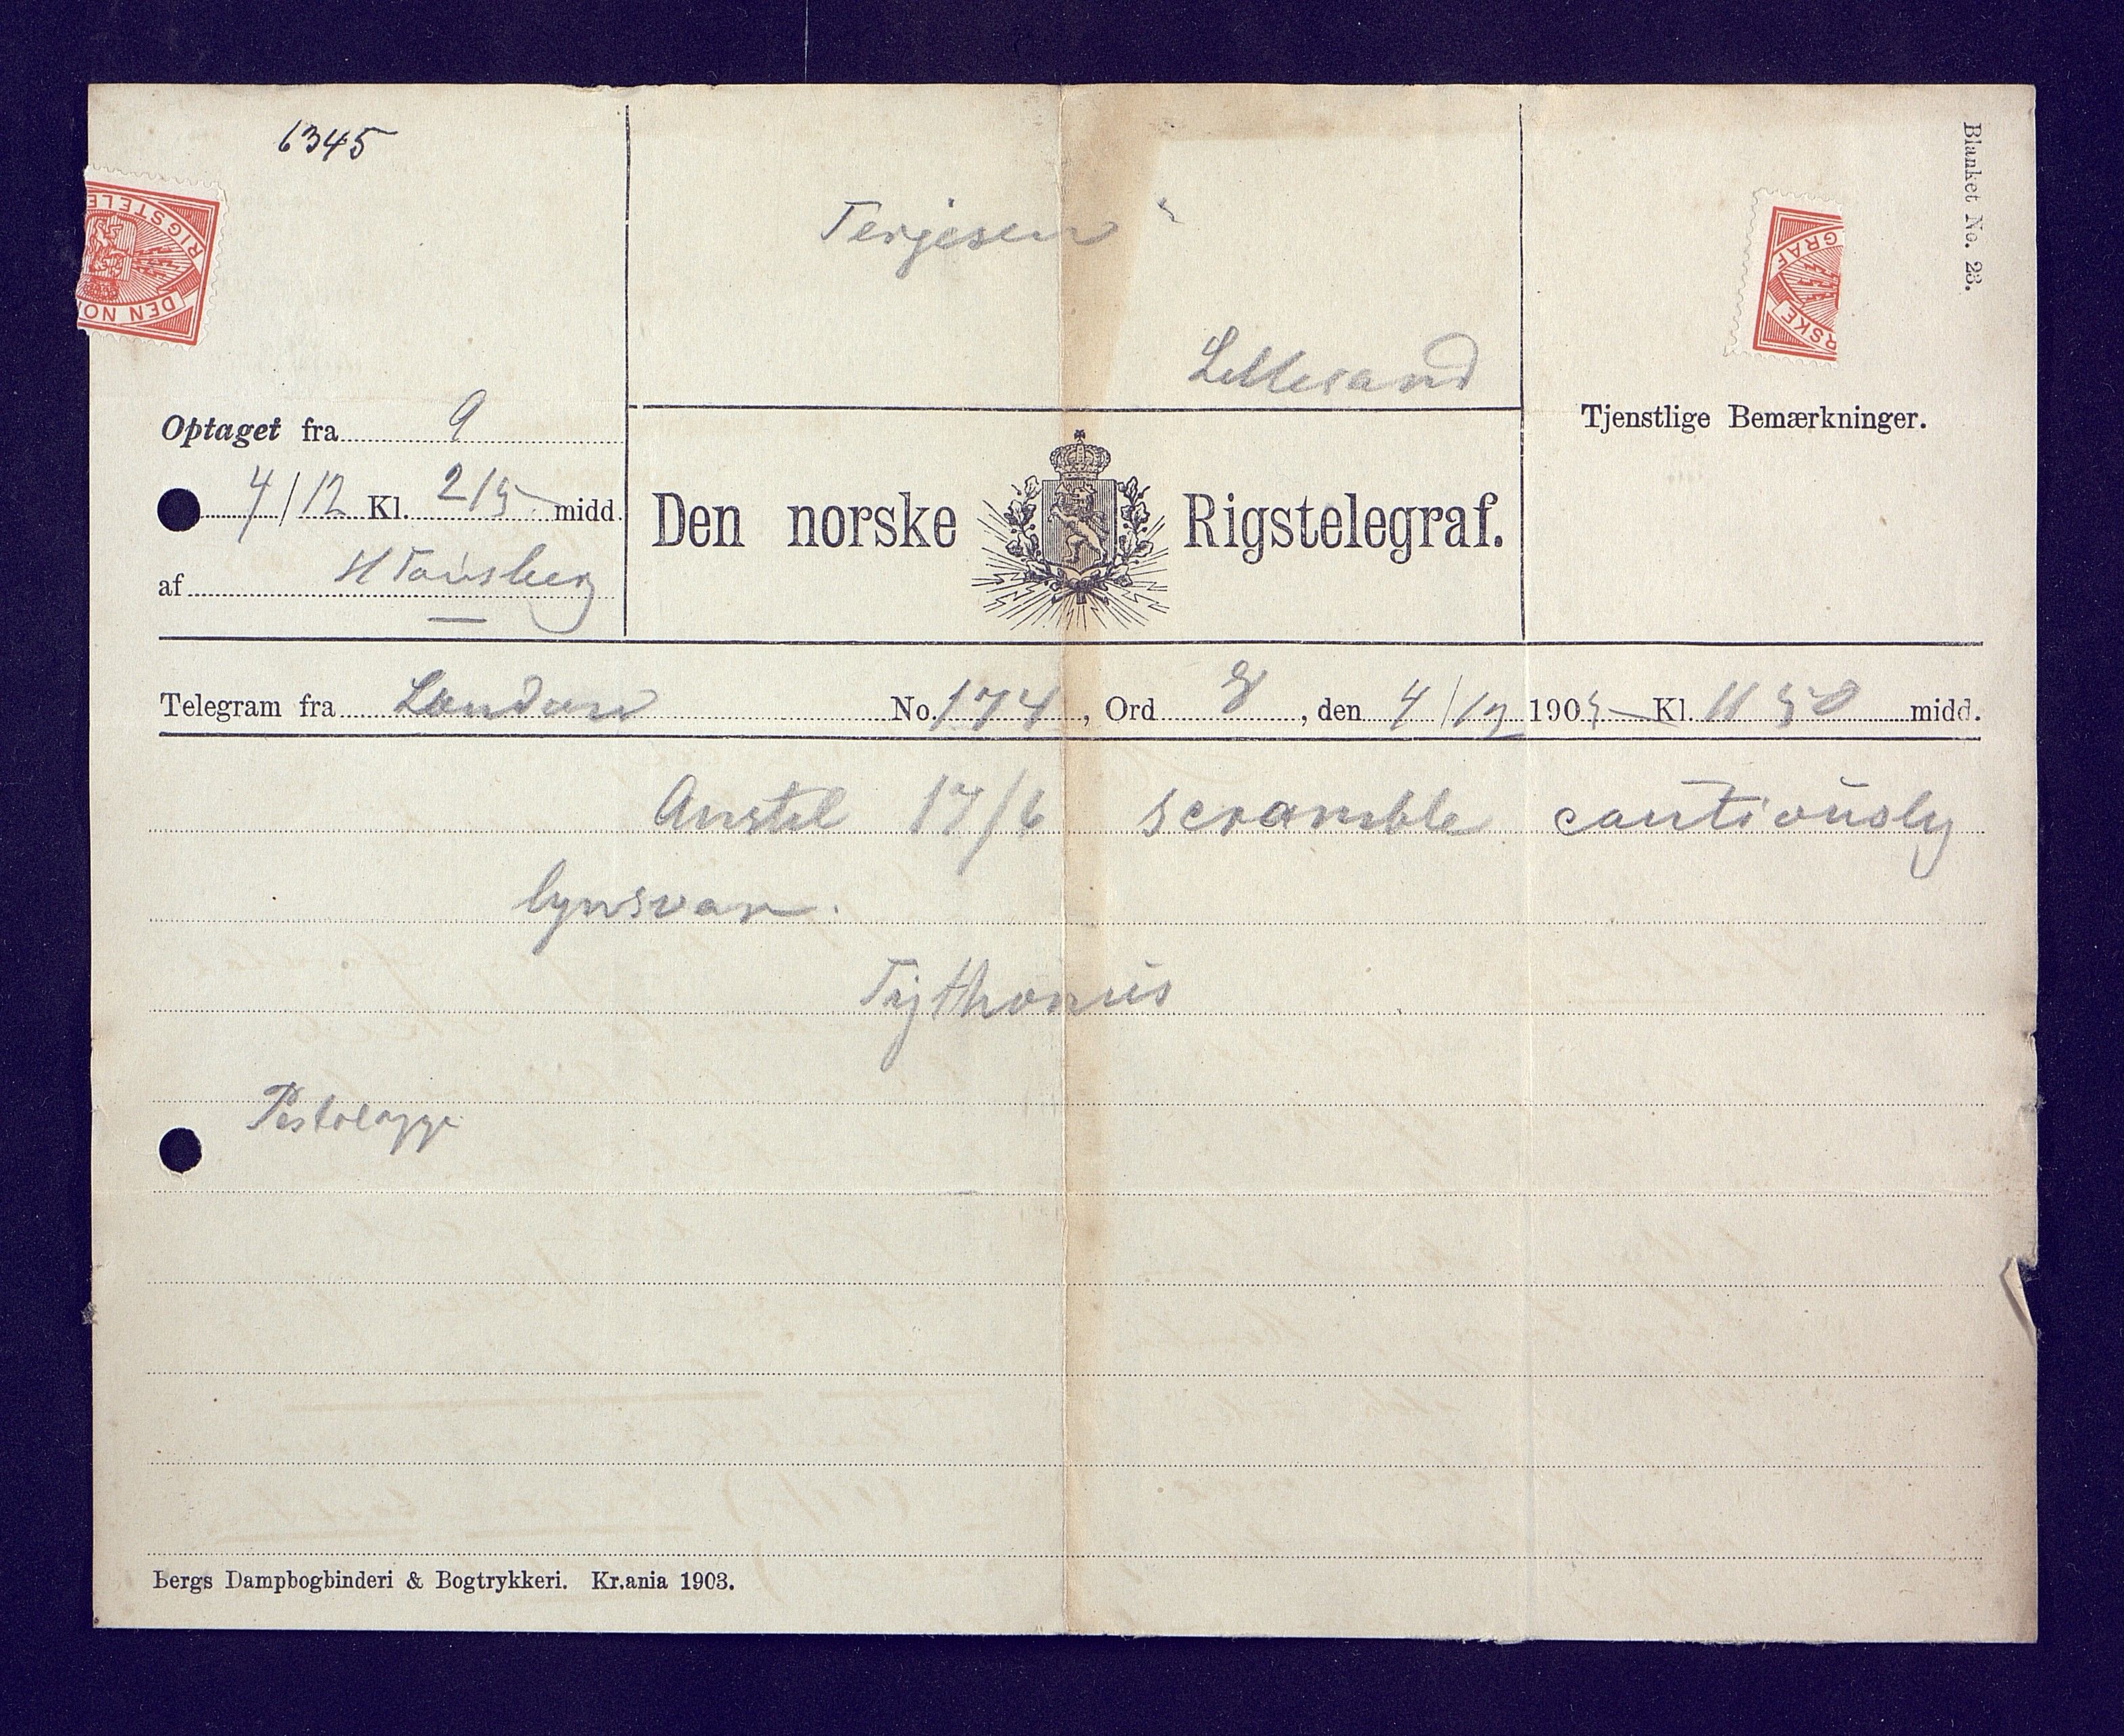 6345
Blanket No. 23.
RIGSTELE
DEN NO
GRAF
RSKE
Terjesen
Lillesand
Optaget fra 9
4/12 Kl. 215 midd.
af
Tjenstlige Bemærkninger.
Den norske Rigstelegraf.
Telegram fra London No. 174, Ord 8, den 4/12 1905 Kl. 11 50 midd.
Amstel 17/6 scramble cautiously
lynsvar.
Bergs Dampbogbinderi & Bogtrykkeri. Kr.ania 1903.